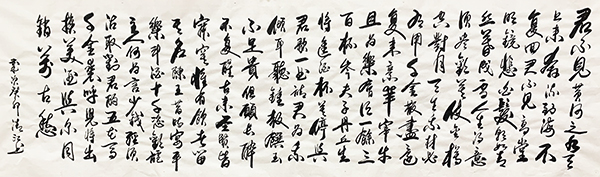 君不見黃河之水天
上來奔流到海不
復回君不見高堂
明鏡悲白髮朝如青
絲暮成雪人生得意
須盡歡莫使金樽
空對月天生我材必
有用千金散盡還
復來烹羊宰牛
且為樂會須一飲三
百杯岑夫子丹丘生
將進酒杯莫停與
君歌一曲請君為我
傾耳聽鐘鼓饌玉
不足貴但願長醉
不復醒古來聖賢皆
寂寞惟有飲者留
其名陳王昔時宴平
樂斗酒十千恣歡謔
主人何為言少錢徑須
沽取對君酌五花馬
千金裘呼兒將出
換美酒與爾同
銷萬古愁
癸卯